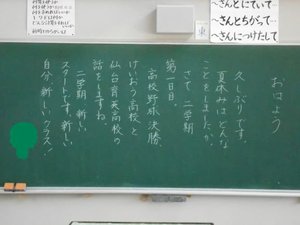 おはよう
久しぶりです。
夏休みはどんな
ことをしましたか。
さて 二学期
第一日目。
高校野球 決勝。
けいおう高校と
仙台育英高校の
話をしますね。
二学期 新しい
スタートです。新しい
自分 新しいクラス！
東
〜さんとにていて…
〜さんとちがって…
〜さんにつけたして